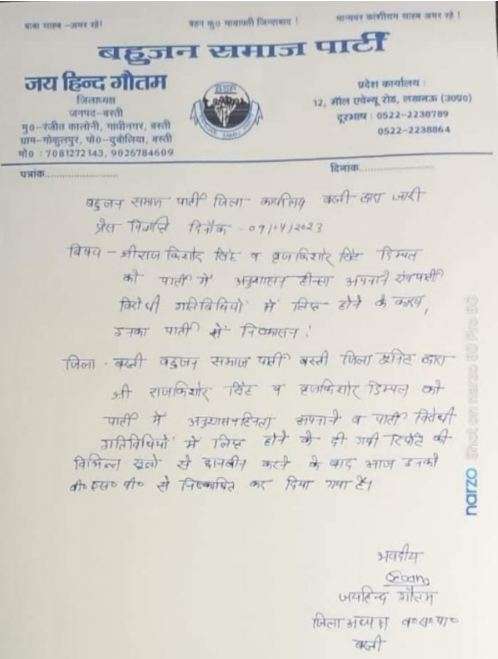 बाबा साहब -अमर रहें!
बहन कु० मायावती जिन्दाबाद !
मान्यवर कांशीराम साहब अमर रहे !
बहुजन समाज पार्टी
जय हिन्द गौतम
जिलाध्यक्ष
जनपद-बस्ती
मु०-रंजीत कालोनी, गांधीनगर, बस्ती
ग्राम-गोकुलपुर, पो०-दुबौलिया, बस्ती
मो० : 7081272143, 9026784609
प्रदेश कार्यालय :
12, मॉल एवेन्यू रोड, लखनऊ (उ०प्र०)
दूरभाष : 0522-2230789
0522-2238864
पत्रांक....................
दिनांक....................
बहुजन समाज पार्टी जिला कार्यालय बस्ती द्वारा जारी
प्रेस विज्ञप्ति दिनाँक - 09/04/2023
विषय - श्री राज किशोर सिंह व ब्रजकिशोर सिंह डिम्पल
को पार्टी में अनुशासन हीनता अपनाने एवं पार्टी
विरोधी गतिविधियों में लिप्त होने के कारण,
उनका पार्टी से निष्कासन !
जिला - बस्ती बहुजन समाज पार्टी बस्ती जिला यूनिट द्वारा
श्री राजकिशोर सिंह व ब्रजकिशोर डिम्पल को
पार्टी में अनुशासनहिनता अपनाने व पार्टी विरोधी
गतिविधियों में लिप्त होने की दी गयी रिपोर्ट की
विभिन्न सूत्रों से छानबीन करने के बाद आज उनको
बी० एस० पी० से निष्कासित कर दिया गया है।
भवदीय
जयहिन्द गौतम
जिला अध्यक्ष ब०स०पा०
बस्ती
narzo Shot on narzo 50 Pro 5G